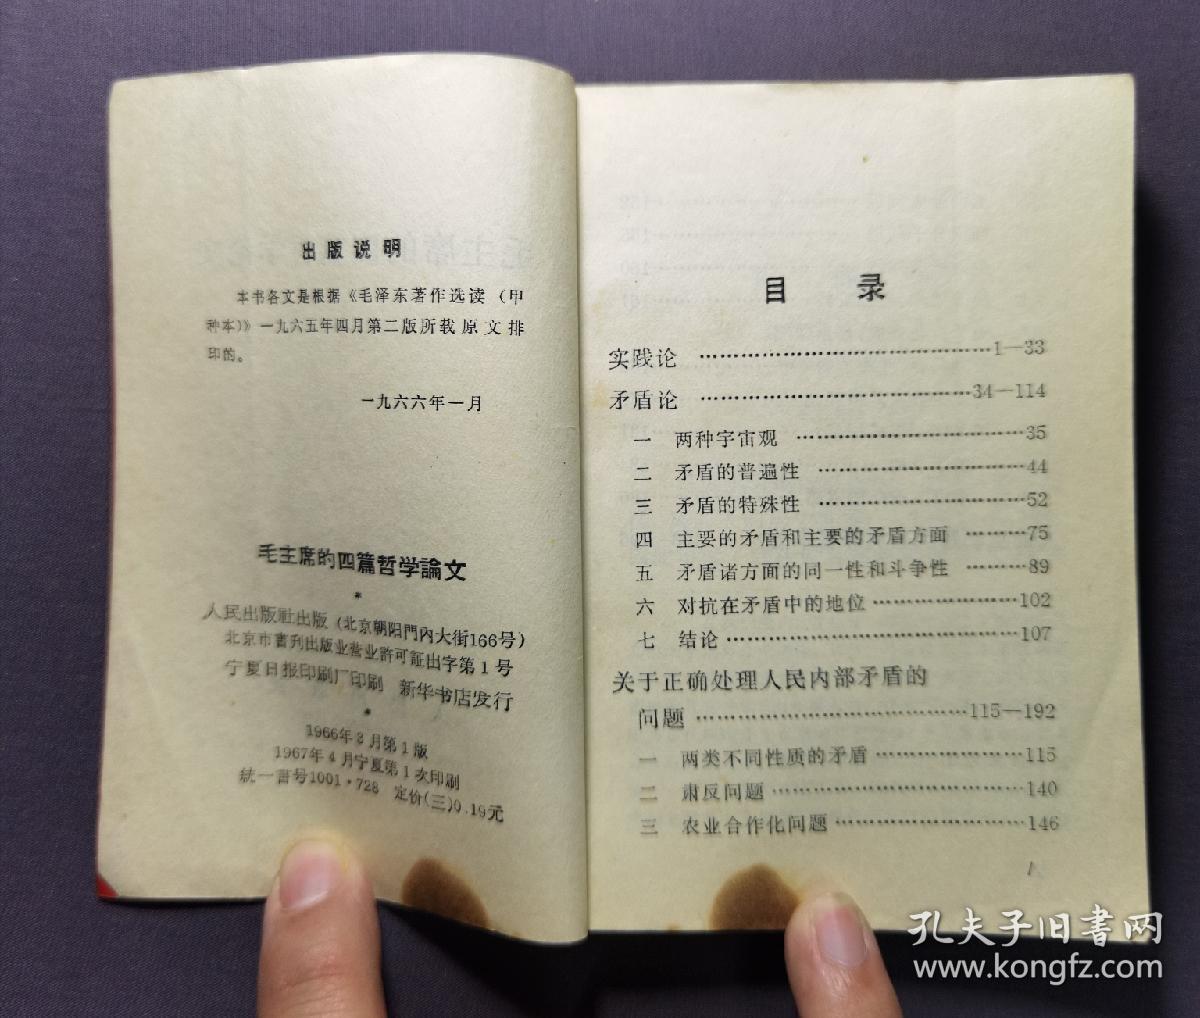 出版说明
本书各文是根据《毛泽东著作选读（甲
种本）》一九六五年四月第二版所载原文排
印的。
一九六六年一月
毛主席的四篇哲学論文
*
人民出版社出版（北京朝阳門內大街166号）
北京市書刊出版业营业許可証出字第1号
宁夏日报印刷厂印刷 新华书店发行
*
1966年3月第1版
1967年4月宁夏第1次印刷
統一書号1001·728 定价(三)0.19元
目 录
实践论 ……………………………………1—33
矛盾论 …………………………………34—114
一 两种宇宙观 ……………………………35
二 矛盾的普遍性 …………………………44
三 矛盾的特殊性 …………………………52
四 主要的矛盾和主要的矛盾方面 ………75
五 矛盾诸方面的同一性和斗争性 ………89
六 对抗在矛盾中的地位…………………102
七 结论……………………………………107
关于正确处理人民内部矛盾的
问题………………………………115—192
一 两类不同性质的矛盾…………………115
二 肃反问题………………………………140
三 农业合作化问题………………………146
1
孔夫子旧書网
www.kongfz.com